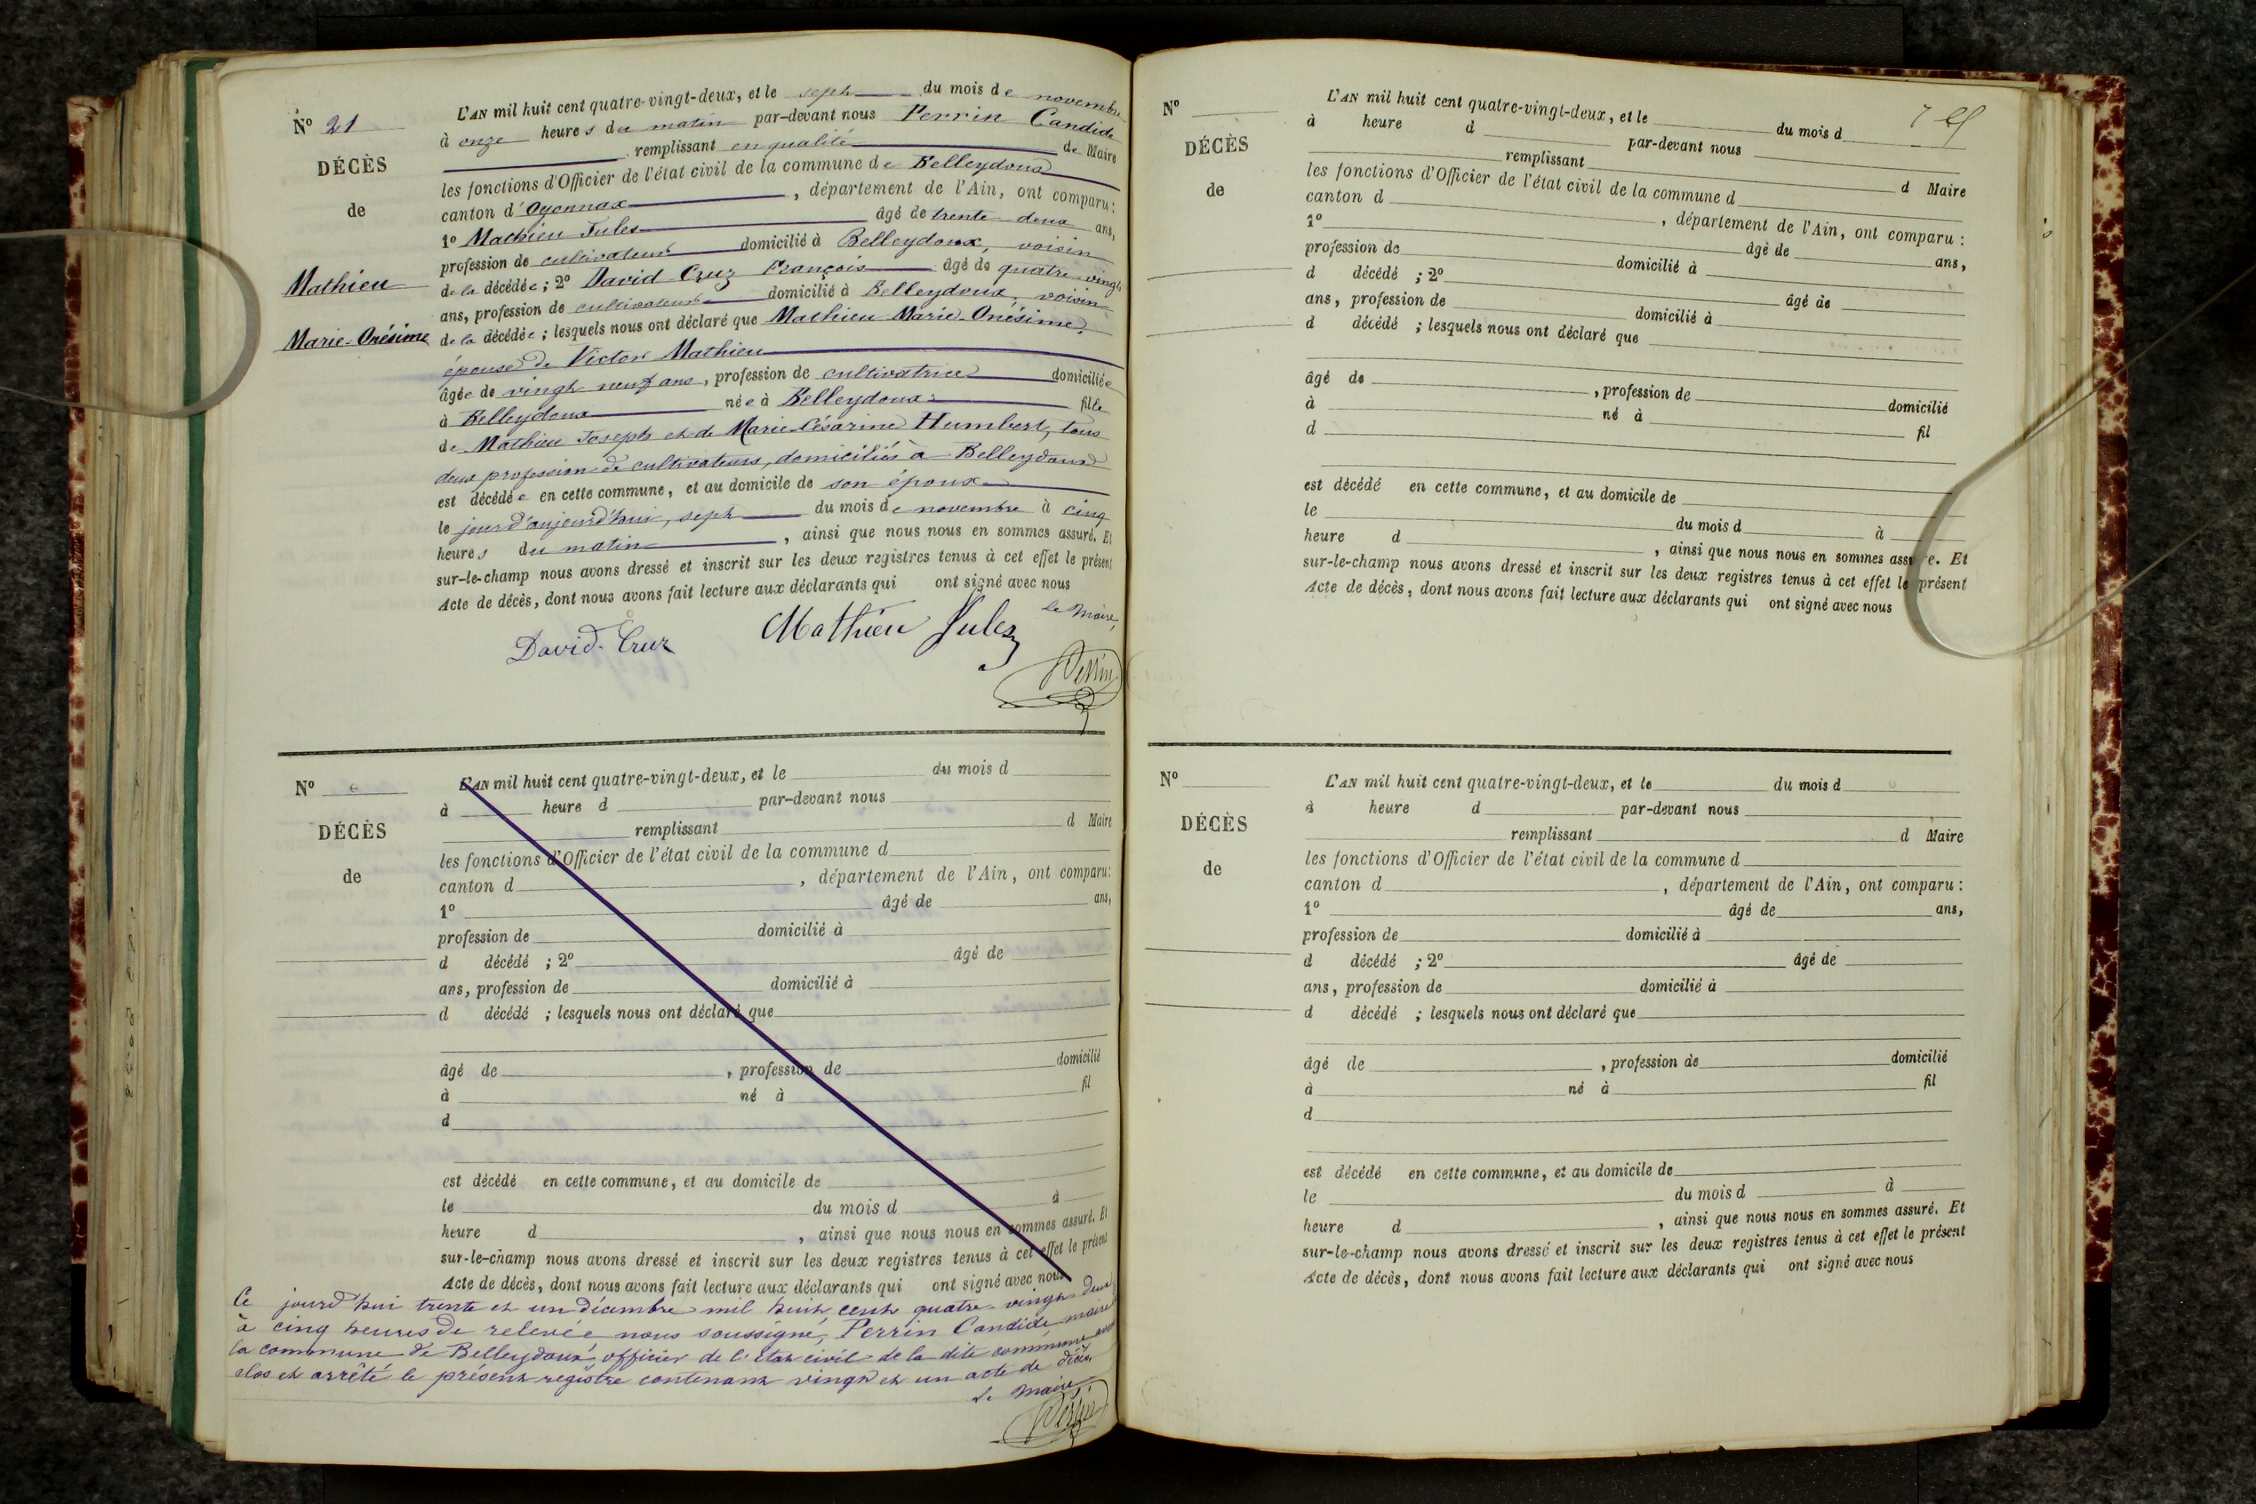 N° 21
DÉCÈS
de
Mathieu
Marie-Onésime
L'AN mil huit cent quatre-vingt-deux, et le sept du mois de novembre
à onze heures du matin par-devant nous Perrin Candide
remplissant en qualité de Maire
les fonctions d'Officier de l'état civil de la commune de Belleydoux
canton d'Oyonnax, département de l'Ain, ont comparu:
1° Mathieu Jules âgé de trente deux ans,
profession de cultivateur domicilié à Belleydoux, voisin
de la décédée; 2° David Cruz François âgé de quatre vingt
ans, profession de cultivateur domicilié à Belleydoux, voisin
de la décédée; lesquels nous ont déclaré que Mathieu Marie-Onésime,
épouse de Victor Mathieu
âgée de vingt neuf ans, profession de cultivatrice domiciliée
à Belleydoux née à Belleydoux fille
de Mathieu Joseph et de Marie-Césarine Humbert, tous
deux profession de cultivateurs, domiciliés à Belleydoux
est décédée en cette commune, et au domicile de son époux
le jour d'aujourd'hui, sept du mois de novembre à cinq
heures du matin, ainsi que nous nous en sommes assuré. Et
sur-le-champ nous avons dressé et inscrit sur les deux registres tenus à cet effet le présent
Acte de décès, dont nous avons fait lecture aux déclarants qui ont signé avec nous
Le Maire,
David-Cruz Mathieu Jules
Perrin
N°
DÉCÈS
de
L'AN mil huit cent quatre-vingt-deux, et le du mois d
à heure d par-devant nous
remplissant d Maire
les fonctions d'Officier de l'état civil de la commune d
canton d , département de l'Ain, ont comparu:
1° âgé de ans,
profession de domicilié à
d décédé ; 2° âgé de
ans, profession de domicilié à
d décédé ; lesquels nous ont déclaré que
âgé de , profession de domicilié
à né à fil
d
est décédé en cette commune, et au domicile de
le du mois d à
heure d , ainsi que nous nous en sommes assuré. Et
sur-le-champ nous avons dressé et inscrit sur les deux registres tenus à cet effet le présent
Acte de décès, dont nous avons fait lecture aux déclarants qui ont signé avec nous
Ce jourd'hui trente et un décembre mil huit cent quatre-vingt-deux
à cinq heures de relevée nous soussigné, Perrin Candide maire
la commune de Belleydoux, officier de l'état civil de la dite commune avons
clos et arrêté le présent registre contenant vingt et un acte de décès
Le Maire
Perrin
N°
DÉCÈS
de
L'AN mil huit cent quatre-vingt-deux, et le du mois d
à heure d par-devant nous
remplissant d Maire
les fonctions d'Officier de l'état civil de la commune d
canton d , département de l'Ain, ont comparu :
1° âgé de ans,
profession de domicilié à
d décédé ; 2° âgé de
ans, profession de domicilié à
d décédé ; lesquels nous ont déclaré que
âgé de , profession de domicilié
à né à fil
d
est décédé en cette commune, et au domicile de
le du mois d à
heure d , ainsi que nous nous en sommes assuré. Et
sur-le-champ nous avons dressé et inscrit sur les deux registres tenus à cet effet le présent
Acte de décès, dont nous avons fait lecture aux déclarants qui ont signé avec nous
N°
DÉCÈS
de
L'AN mil huit cent quatre-vingt-deux, et le du mois d
à heure d par-devant nous
remplissant d Maire
les fonctions d'Officier de l'état civil de la commune d
canton d , département de l'Ain, ont comparu :
1° âgé de ans,
profession de domicilié à
d décédé ; 2° âgé de
ans, profession de domicilié à
d décédé ; lesquels nous ont déclaré que
âgé de , profession de domicilié
à né à fil
d
est décédé en cette commune, et au domicile de
le du mois d à
heure d , ainsi que nous nous en sommes assuré. Et
sur-le-champ nous avons dressé et inscrit sur les deux registres tenus à cet effet le présent
Acte de décès, dont nous avons fait lecture aux déclarants qui ont signé avec nous